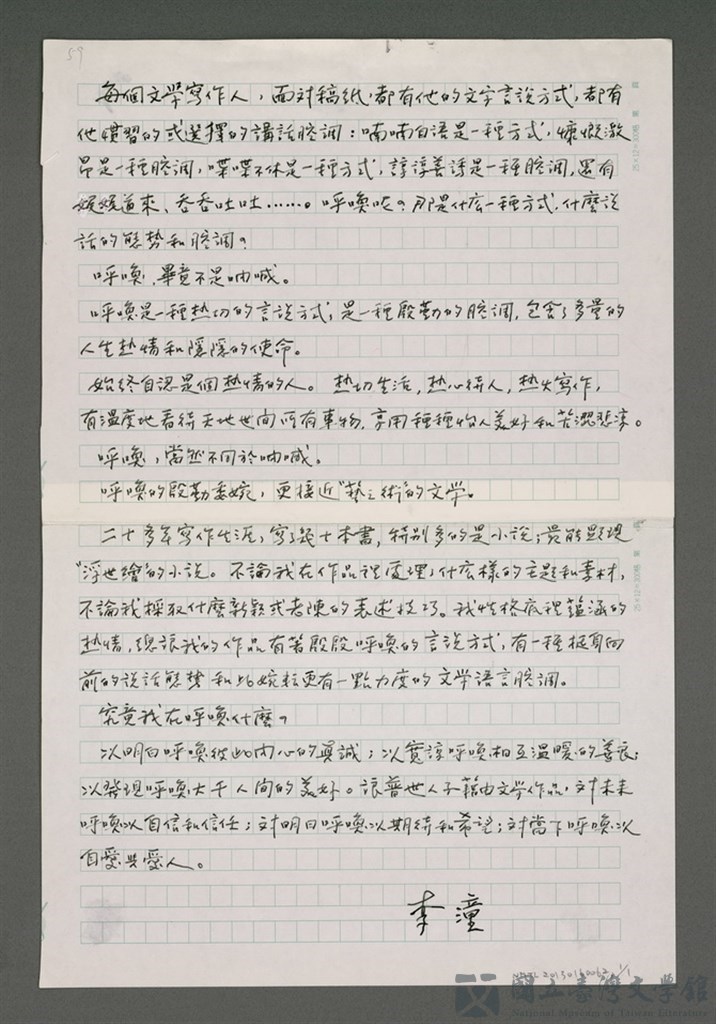 59
每個文學寫作人，面對稿紙，都有他的文字言說方式，都有
他慣習的或選擇的講話腔調：喃喃自語是一種方式，慷慨激
昂是一種腔調，喋喋不休是一種方式，諄諄善誘是一種腔調，還有
娓娓道來、吞吞吐吐……。呼喚呢？那是什麼一種方式，什麼說
話的態勢和腔調？
呼喚，畢竟不是吶喊。
呼喚是一種熱切的言說方式；是一種殷勤的腔調，包含了多量的
人生熱情和隱隱的使命。
始終自認是個熱情的人。熱切生活，熱心待人，熱火寫作，
有溫度地看待天地世間所有事物，享用種種怡人美好和苦澀悲涼。
呼喚，當然不同於吶喊。
呼喚的殷勤委婉，更接近"藝術"的文學。
二十多年寫作生涯，寫了幾十本書，特別多的是小說；最能顯現
"浮世繪"的小說。不論我在作品裡處理了什麼樣的主題和素材，
不論我採取什麼新穎或老陳的表述技巧。我性格底裡蘊涵的
熱情，總讓我的作品有著殷殷呼喚的言說方式，有一種挺身向
前的說話態勢和比婉約更有一點力度的文學語言腔調。
究竟我在呼喚什麼？
以明白呼喚彼此內心的真誠；以寬諒呼喚相互溫暖的善良；
以發現呼喚大千人間的美好。讓普世人子藉由文學作品，對未來
呼喚以自信和信任；對明日呼喚以期待和希望；對當下呼喚以
自愛與愛人。
李潼
NMTL20150160062 1/1
國立臺灣文學館
National Museum of Taiwan Literature